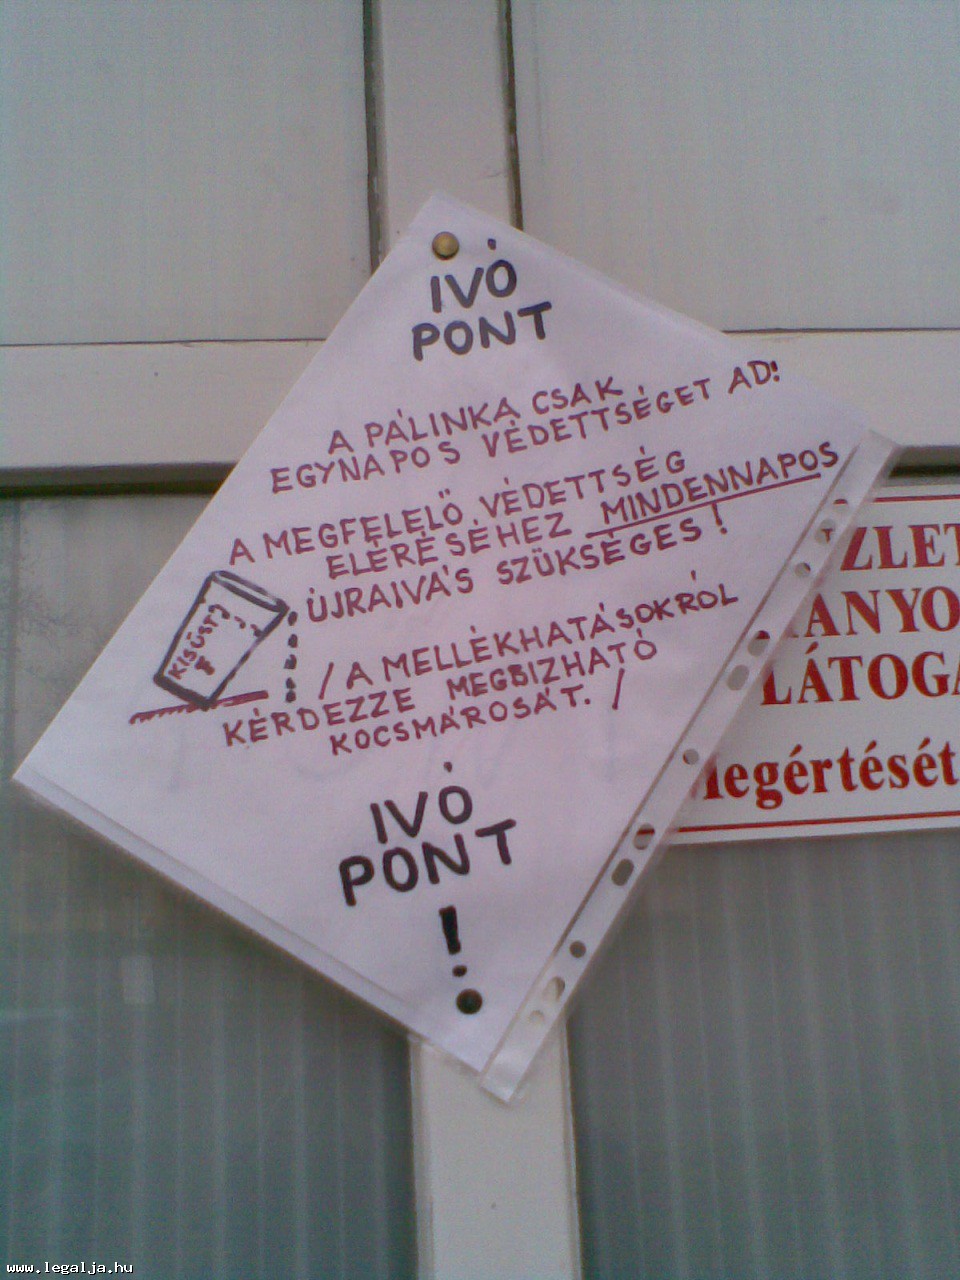 IVÓ
PONT
A PÁLINKA CSAK
EGYNAPOS VÉDETTSÉGET AD!
A MEGFELELŐ VÉDETTSÉG
ELÉRÉSÉHEZ MINDENNAPOS
ÚJRAIVÁS SZÜKSÉGES!
KISÜSTJ
/A MELLÉKHATÁSOKRÓL
KÉRDEZZE MEGBIZHATÓ
KOCSMÁROSÁT./
IVÓ
PONT
!
ZLET
ANYO
LÁTOGA
egértését
www.legalja.hu